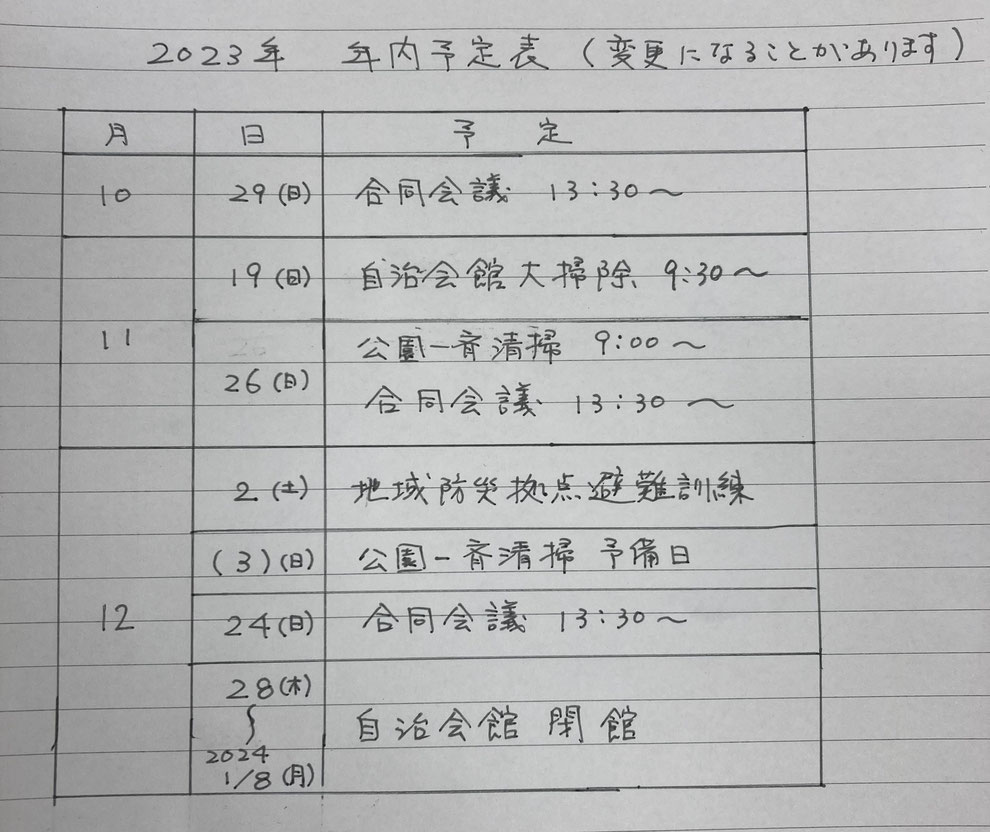 2023年 年内予定表(変更になることがあります)
月 日 予定
10 29(日) 合同会議 13:30〜
19(日) 自治会館大掃除 9:30〜
11
公園一斉清掃 9:00〜
26(日)
合同会議 13:30〜
2(土) 地域防災拠点避難訓練
(3)(日) 公園一斉清掃 予備日
12 24(日) 合同会議 13:30〜
28(木)
〜 自治会館 閉館
2024
1/8(月)